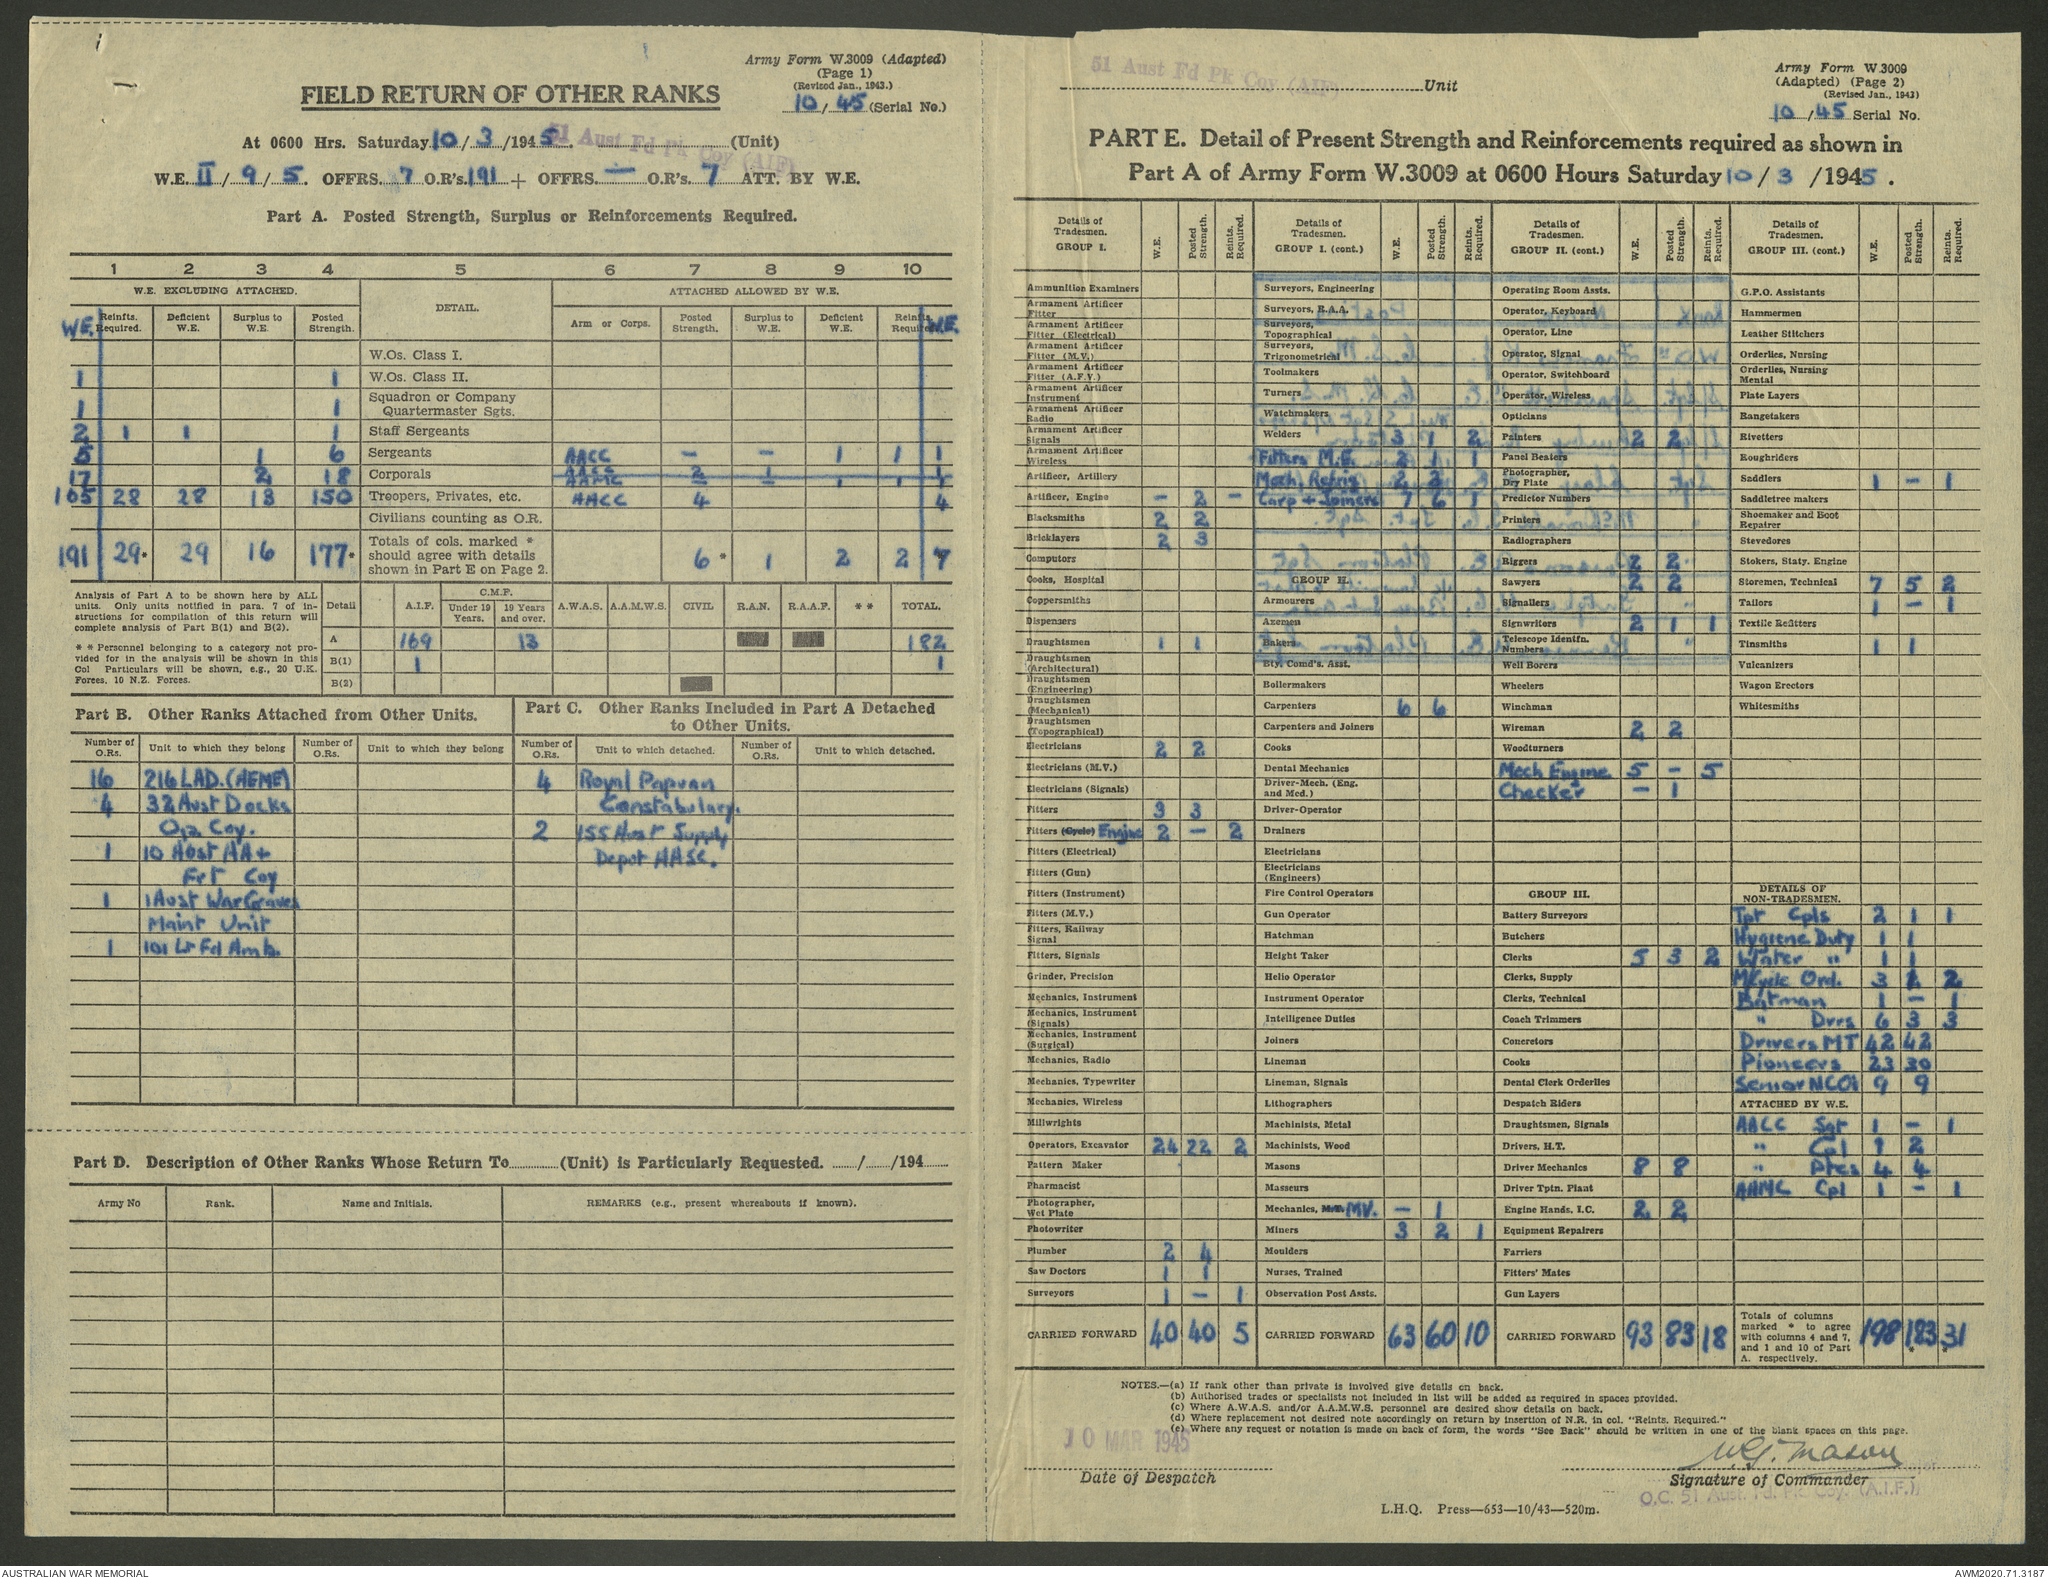 Army Form W.3009 (Adapted)
(Page 1)
(Revised Jan., 1943.)
10/45 (Serial No.)
FIELD RETURN OF OTHER RANKS
At 0600 Hrs. Saturday 10/3/1945. 51 Aust Fd Pk Coy (AIF) (Unit)
W.E. II/9/5. OFFRS. 7 O.R's. 191 + OFFRS. — O.R's. 7 ATT. BY W.E.
Part A. Posted Strength, Surplus or Reinforcements Required.
1 2 3 4 5 6 7 8 9 10
W.E. EXCLUDING ATTACHED. DETAIL. ATTACHED ALLOWED BY W.E.
W.E. Reinfts. Required. Deficient W.E. Surplus to W.E. Posted Strength. Arm or Corps. Posted Strength. Surplus to W.E. Deficient W.E. Reinfts. Required W.E.
W.Os. Class I.
1 1 W.Os. Class II.
1 1 Squadron or Company Quartermaster Sgts.
2 1 1 1 Staff Sergeants
5 1 6 Sergeants AACC – – 1 1 1
17 2 18 Corporals AACC 2 1 1
AAMC – – 1 1 1
165 28 28 13 150 Troopers, Privates, etc. AACC 4 4
Civilians counting as O.R.
191 29* 29 16 177* Totals of cols. marked * should agree with details shown in Part E on Page 2. 6* 1 2 2 7
Analysis of Part A to be shown here by ALL units. Only units notified in para. 7 of instructions for compilation of this return will complete analysis of Part B(1) and B(2).
* * Personnel belonging to a category not provided for in the analysis will be shown in this Col Particulars will be shown, e.g., 20 U.K. Forces, 10 N.Z. Forces.
Detail A.I.F. C.M.F. Under 19 Years. 19 Years and over. A.W.A.S. A.A.M.W.S. CIVIL R.A.N. R.A.A.F. * * TOTAL.
A 169 13 182
B(1) 1 1
B(2)
Part B. Other Ranks Attached from Other Units.
Part C. Other Ranks Included in Part A Detached to Other Units.
Number of O.Rs. Unit to which they belong Number of O.Rs. Unit to which they belong Number of O.Rs. Unit to which detached. Number of O.Rs. Unit to which detached.
16 216 LAD. (AEME) 4 Royal Papuan
4 32 Aust Docks Constabulary.
Op. Coy. 2 155 Aust Supply
1 10 Aust AA + Depot AASC.
Frt Coy
1 1 Aust War Graves
Maint Unit
1 101 Lt Fd Amb.
Part D. Description of Other Ranks Whose Return To (Unit) is Particularly Requested. / /194
Army No Rank. Name and Initials. REMARKS (e.g., present whereabouts if known).
51 Aust Fd Pk Coy (AIF) Unit
Army Form W.3009
(Adapted) (Page 2)
(Revised Jan., 1943)
10/45 Serial No.
PART E. Detail of Present Strength and Reinforcements required as shown in
Part A of Army Form W.3009 at 0600 Hours Saturday 10/3/1945.
Details of Tradesmen. GROUP I. W.E. Posted Strength. Reints. Required.
Ammunition Examiners
Armament Artificer Fitter
Armament Artificer Fitter (Electrical)
Armament Artificer Fitter (M.V.)
Armament Artificer Fitter (A.F.V.)
Armament Artificer Instrument
Armament Artificer Radio
Armament Artificer Signals
Armament Artificer Wireless
Artificer, Artillery
Artificer, Engine – 2 –
Blacksmiths 2 2
Bricklayers 2 3
Computors
Cooks, Hospital
Coppersmiths
Dispensers
Draughtsmen 1 1
Draughtsmen (Architectural)
Draughtsmen (Engineering)
Draughtsmen (Mechanical)
Draughtsmen (Topographical)
Electricians 2 2
Electricians (M.V.)
Electricians (Signals)
Fitters 3 3
Fitters (Cycle) Engine 2 – 2
Fitters (Electrical)
Fitters (Gun)
Fitters (Instrument)
Fitters (M.V.)
Fitters, Railway Signal
Fitters, Signals
Grinder, Precision
Mechanics, Instrument
Mechanics, Instrument (Signals)
Mechanics, Instrument (Surgical)
Mechanics, Radio
Mechanics, Typewriter
Mechanics, Wireless
Millwrights
Operators, Excavator 24 22 2
Pattern Maker
Pharmacist
Photographer, Wet Plate
Photowriter
Plumber 2 4
Saw Doctors 1 1
Surveyors 1 – 1
CARRIED FORWARD 40 40 5
Details of Tradesmen. GROUP I. (cont.) W.E. Posted Strength. Reints. Required.
Surveyors, Engineering
Surveyors, R.A.A.
Surveyors, Topographical
Surveyors, Trigonometrical
Toolmakers
Turners
Watchmakers
Welders 3 1 2
Fitters M.E. 2 1 1
Mech. Refrig 2 2
Carp + Joiners 7 6 1
GROUP II.
Armourers
Axemen
Bakers
Bty. Comd's. Asst.
Boilermakers
Carpenters 6 6
Carpenters and Joiners
Cooks
Dental Mechanics
Driver-Mech. (Eng. and Med.)
Driver-Operator
Drainers
Electricians
Electricians (Engineers)
Fire Control Operators
Gun Operator
Hatchman
Height Taker
Helio Operator
Instrument Operator
Intelligence Duties
Joiners
Lineman
Lineman, Signals
Lithographers
Machinists, Metal
Machinists, Wood
Masons
Masseurs
Mechanics, MV. – 1
Miners 3 2 1
Moulders
Nurses, Trained
Observation Post Assts.
CARRIED FORWARD 63 60 10
Details of Tradesmen. GROUP II. (cont.) W.E. Posted Strength. Reints. Required.
Operating Room Assts.
Operator, Keyboard
Operator, Line
Operator, Signal
Operator, Switchboard
Operator, Wireless
Opticians
Painters 2 2
Panel Beaters
Photographer, Dry Plate
Predictor Numbers
Printers
Radiographers
Riggers 2 2
Sawyers 2 2
Signallers
Signwriters 2 1 1
Telescope Identfn. Numbers
Well Borers
Wheelers
Winchman
Wireman 2 2
Woodturners
Mech Engine 5 – 5
Checker – 1
GROUP III.
Battery Surveyors
Butchers
Clerks 5 3 2
Clerks, Supply
Clerks, Technical
Coach Trimmers
Concretors
Cooks
Dental Clerk Orderlies
Despatch Riders
Draughtsmen, Signals
Drivers, H.T.
Driver Mechanics 8 8
Driver Tptn. Plant
Engine Hands, I.C. 2 2
Equipment Repairers
Farriers
Fitters' Mates
Gun Layers
CARRIED FORWARD 93 83 18
Details of Tradesmen. GROUP III. (cont.) W.E. Posted Strength. Reints. Required.
G.P.O. Assistants
Hammermen
Leather Stitchers
Orderlies, Nursing
Orderlies, Nursing Mental
Plate Layers
Rangetakers
Rivetters
Roughriders
Saddlers 1 – 1
Saddletree makers
Shoemaker and Boot Repairer
Stevedores
Stokers, Staty. Engine
Storemen, Technical 7 5 2
Tailors 1 – 1
Textile Refitters
Tinsmiths 1 1
Vulcanizers
Wagon Erectors
Whitesmiths
DETAILS OF NON-TRADESMEN.
Tpt Cpls 2 1 1
Hygiene Duty 1 1
Water " 1 1
M/Cycle Ord. 3 2
Batman 1 – 1
" Dvrs 6 3 3
Drivers MT 42 42
Pioneers 23 30
Senior NCOs 9 9
ATTACHED BY W.E.
AACC Sgt 1 – 1
" Cpl 1 2
" Ptes 4 4
AAMC Cpl 1 – 1
Totals of columns marked * to agree with columns 4 and 7, and 1 and 10 of Part A. respectively. 198 183* 31*
NOTES.—(a) If rank other than private is involved give details on back.
(b) Authorised trades or specialists not included in list will be added as required in spaces provided.
(c) Where A.W.A.S. and/or A.A.M.W.S. personnel are desired show details on back.
(d) Where replacement not desired note accordingly on return by insertion of N.R. in col. "Reints. Required."
(e) Where any request or notation is made on back of form, the words "See Back" should be written in one of the blank spaces on this page.
10 MAR 1945
Date of Despatch
W G Mason
Signature of Commander
O.C. 51 Aust. Fd. Pk. Coy. (A.I.F.)
L.H.Q. Press—653—10/43—520m.
AUSTRALIAN WAR MEMORIAL
AWM2020.71.3187